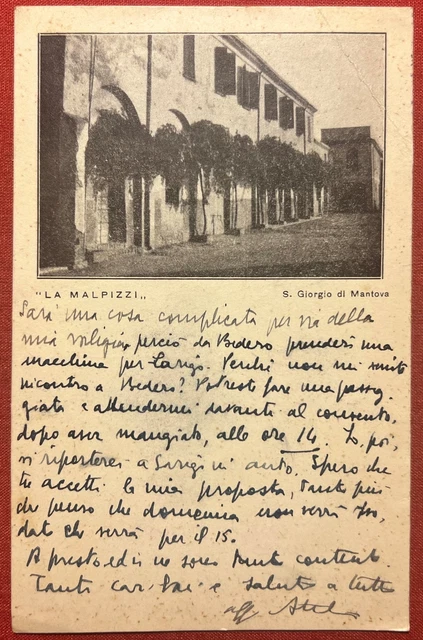 "LA MALPIZZI„
S. Giorgio di Mantova
Sarà una cosa complicata per via della
mia valigia, perciò da Bedero prenderò una
macchina per Sarigo. Perchè non mi vieni
incontro a Bedero? Potresti fare una passeg
giata e attendermi davanti al convento,
dopo aver mangiato, alle ore 14. Io, poi,
vi riporterei a Sarigo in auto. Spero che
tu accetti la mia proposta, tanto più
che penso che domenica non verrà
dato che verrà per il 15.
A presto ed io sono tanto contento.
Tanti cari baci e saluti a tutti
aff.